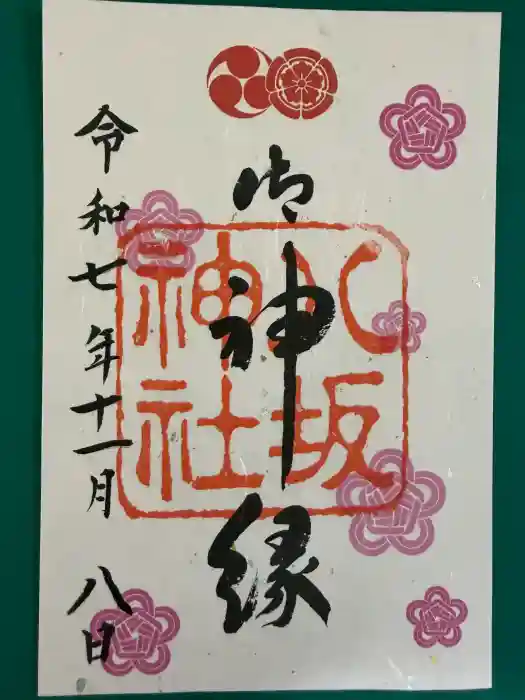 御神縁
八坂
神社
令和七年十一月 八日